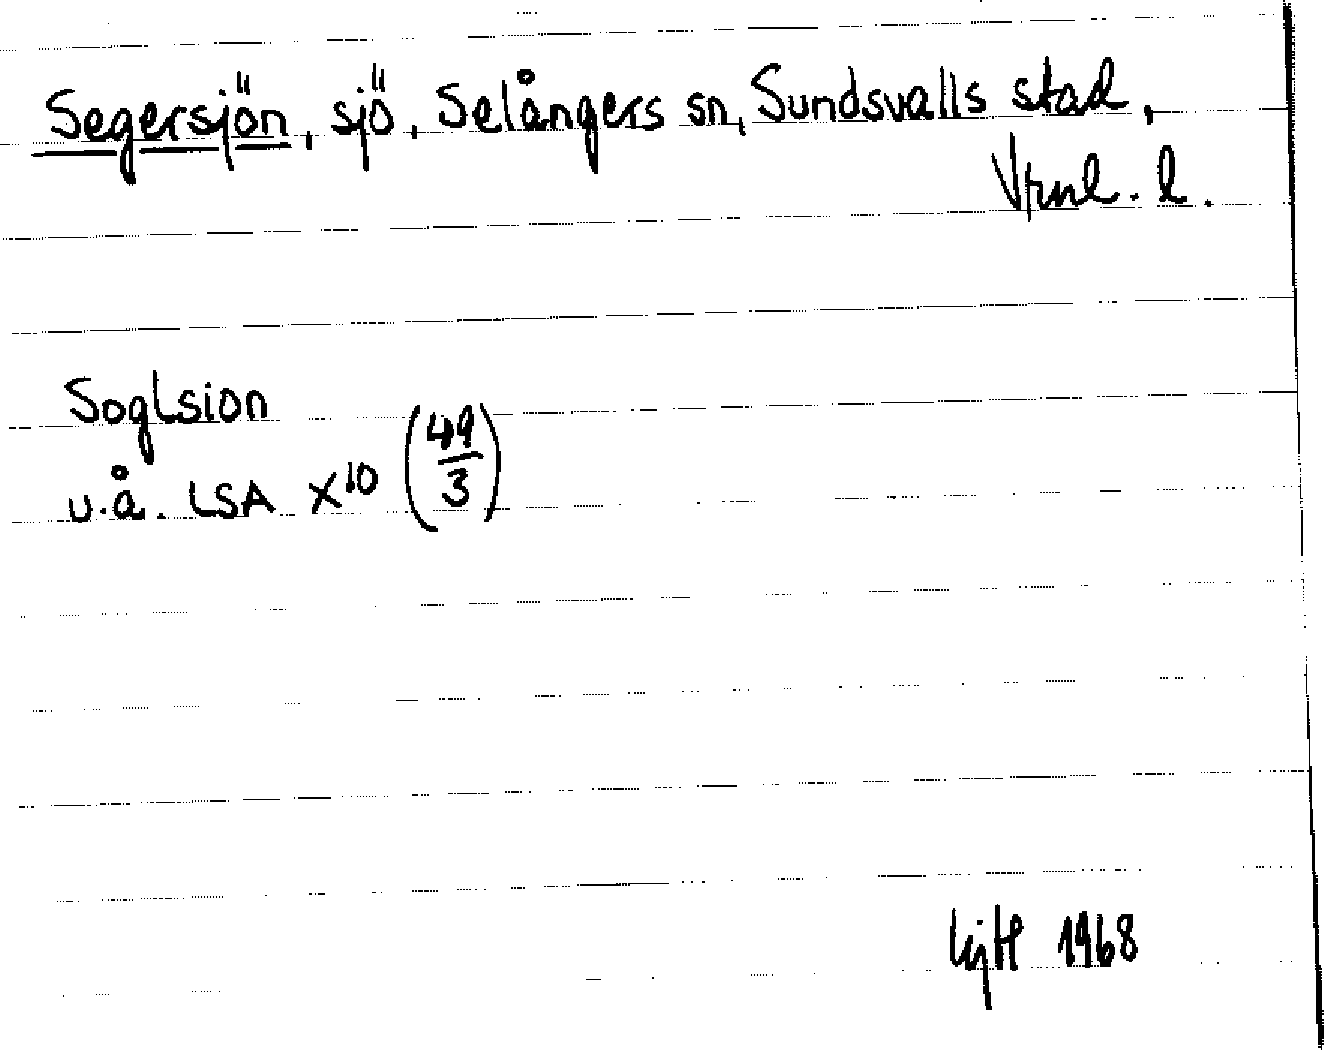 Segersjön, sjö, Selångers sn, Sundsvalls stad,
Vrnl. l.
Soglsion
u.å. LSA X¹⁰ (49/3)
1968